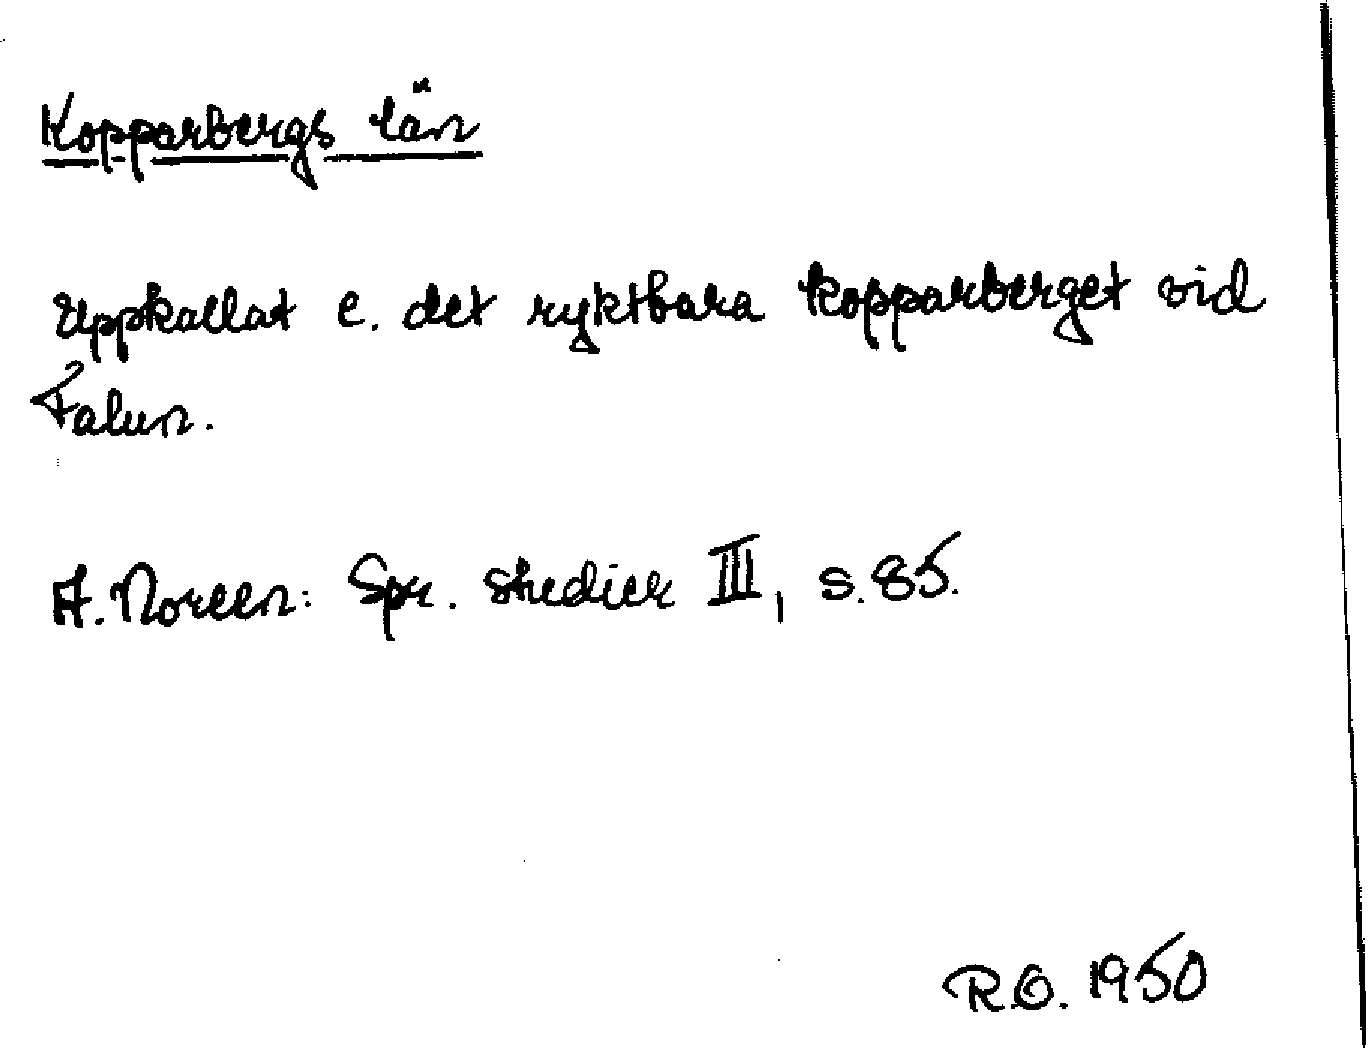 Kopparbergs län
Uppkallat e. det ryktbara kopparberget vid
Falun.
A. Noreen: Spr. studier III, s. 85.
R.O. 1950